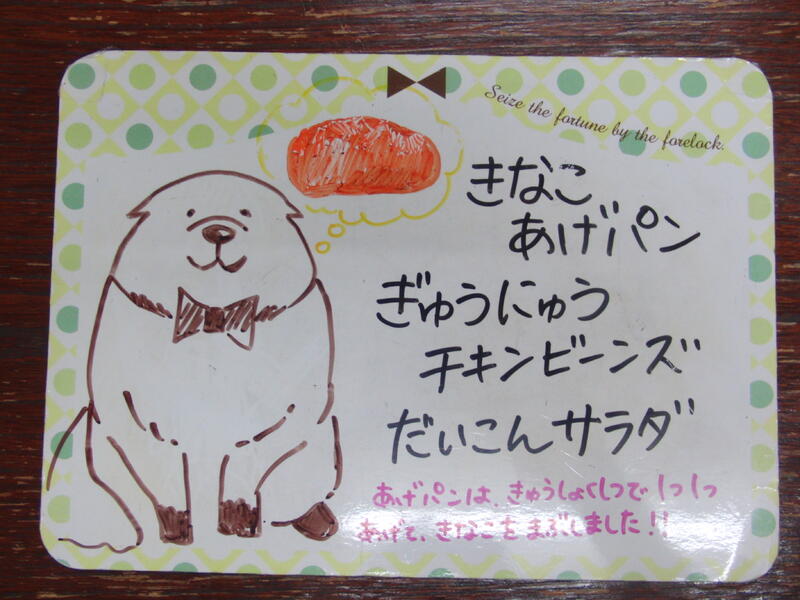 Seize the fortune by the forelock.
きなこ
あげパン
ぎゅうにゅう
チキンビーンズ
だいこんサラダ
あげパンは、きゅうしょくしつで1つ1つ
あげて、きなこをまぶしました!!